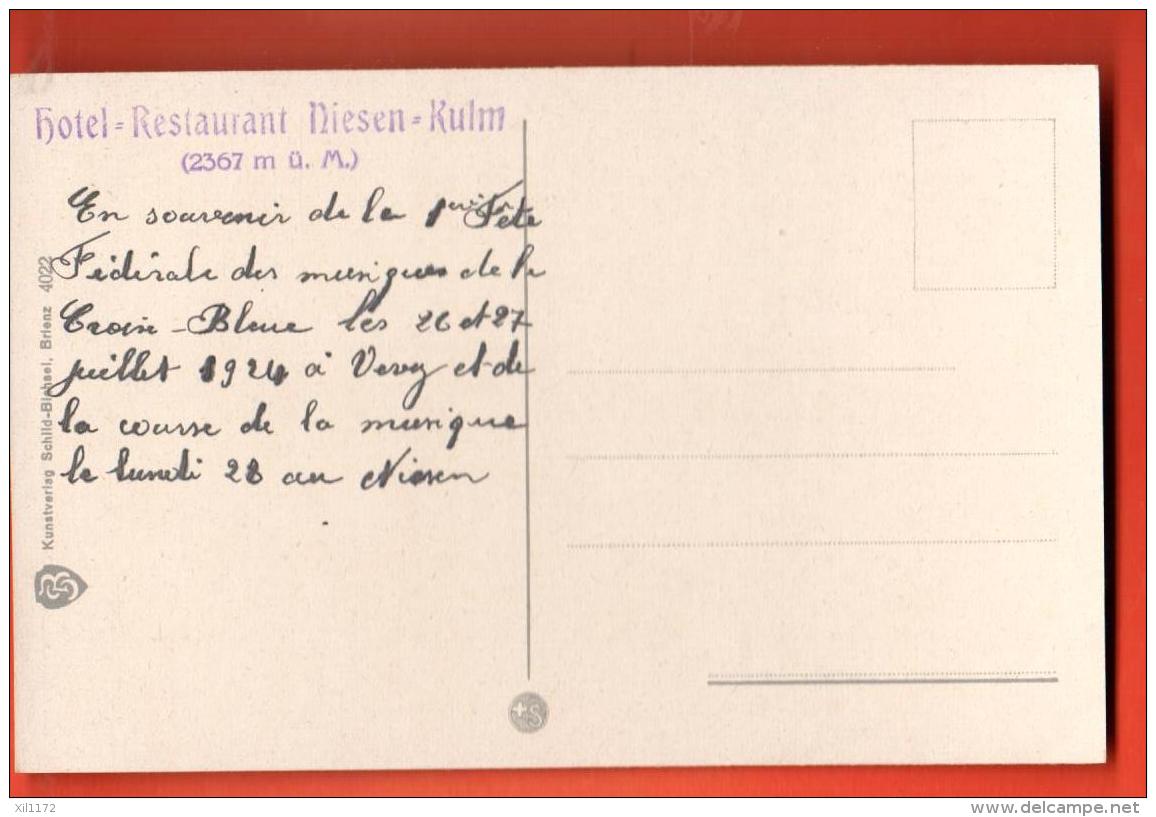 Hotel-Restaurant Niesen-Kulm
(2367 m ü. M.)
En souvenir de la 1ère Fête
Fédérale des musiques de la
Croix-Bleue les 26 et 27
juillet 1924 à Vevey et de
la course de la musique
le lundi 28 au Niesen
Kunstverlag Schild-Bichsel, Brienz 4022
+S
xil1172
www.delcampe.net